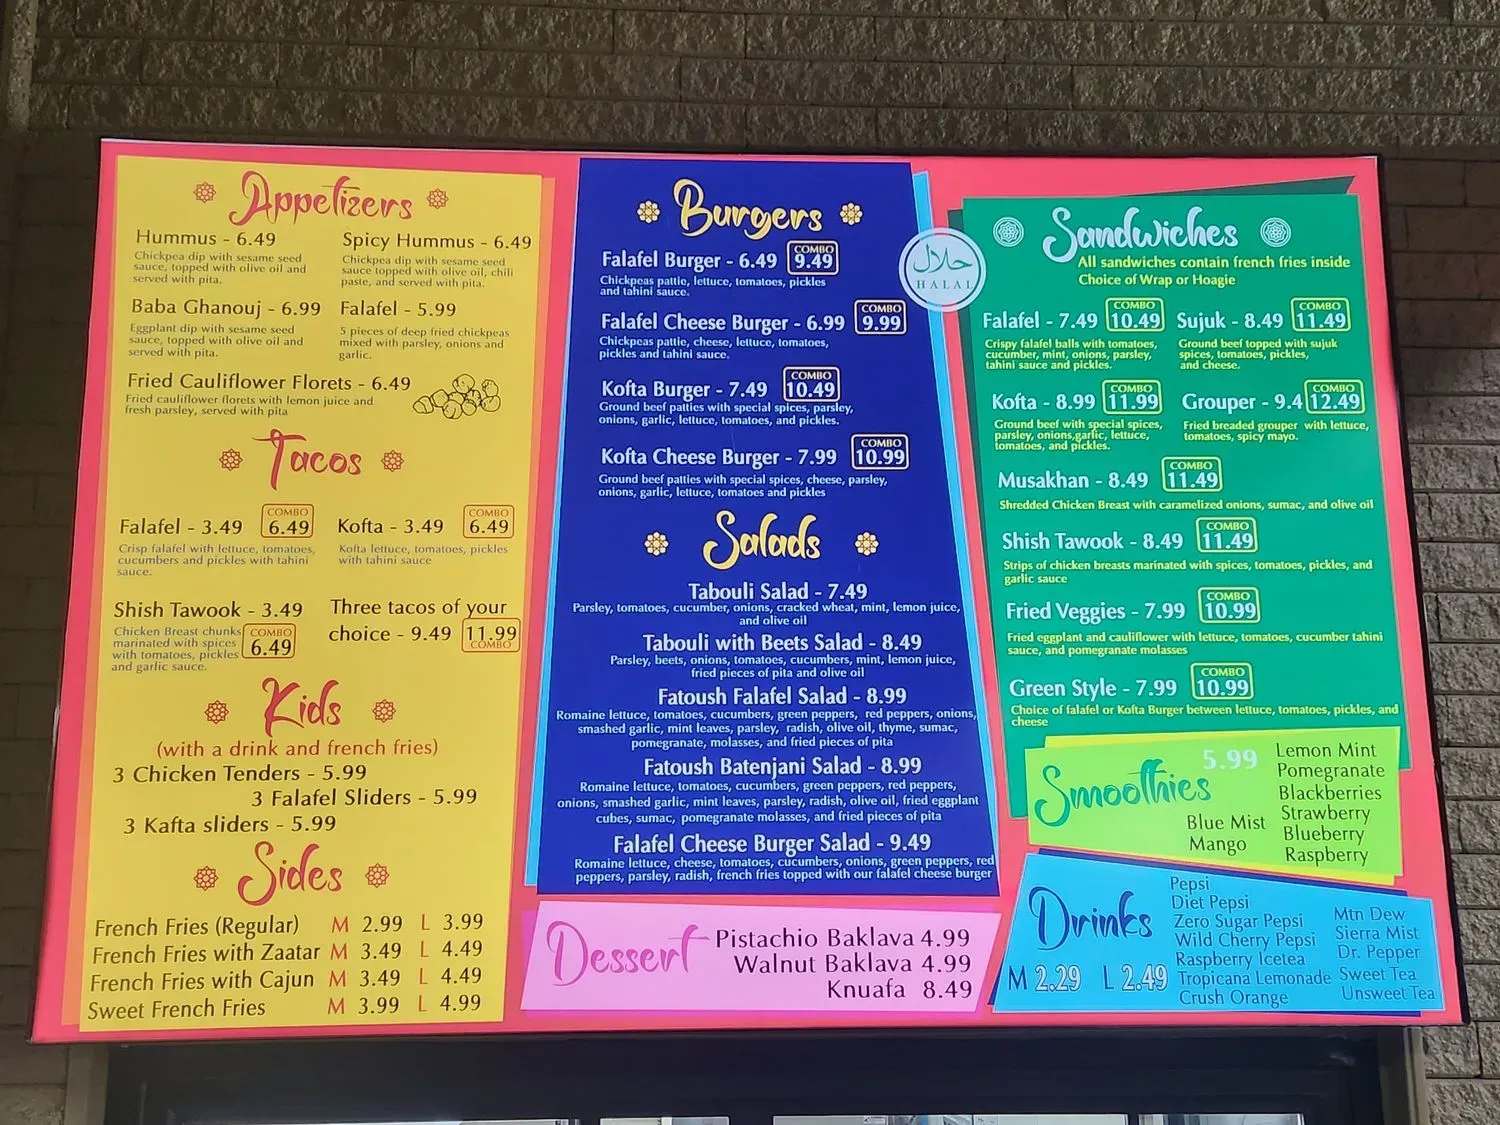 Appetizers
Hummus - 6.49
Chickpea dip with sesame seed
sauce, topped with olive oil and
served with pita.
Spicy Hummus - 6.49
Chickpea dip with sesame seed
sauce topped with olive oil, chili
paste, and served with pita.
Baba Ghanouj - 6.99
Eggplant dip with sesame seed
sauce, topped with olive oil and
served with pita.
Falafel - 5.99
5 pieces of deep fried chickpeas
mixed with parsley, onions and
garlic.
Fried Cauliflower Florets - 6.49
Fried cauliflower florets with lemon juice and
fresh parsley, served with pita
Tacos
Falafel - 3.49 COMBO 6.49
Crisp falafel with lettuce, tomatoes,
cucumbers and pickles with tahini
sauce.
Kofta - 3.49 COMBO 6.49
Kofta lettuce, tomatoes, pickles
with tahini sauce
Shish Tawook - 3.49
Chicken Breast chunks
marinated with spices
with tomatoes, pickles
and garlic sauce.
COMBO 6.49
Three tacos of your
choice - 9.49 11.99 COMBO
Kids
(with a drink and french fries)
3 Chicken Tenders - 5.99
3 Falafel Sliders - 5.99
3 Kafta sliders - 5.99
Sides
French Fries (Regular) M 2.99 L 3.99
French Fries with Zaatar M 3.49 L 4.49
French Fries with Cajun M 3.49 L 4.49
Sweet French Fries M 3.99 L 4.99
Burgers
Falafel Burger - 6.49 COMBO 9.49
Chickpeas pattie, lettuce, tomatoes, pickles
and tahini sauce.
Falafel Cheese Burger - 6.99 COMBO 9.99
Chickpeas pattie, cheese, lettuce, tomatoes,
pickles and tahini sauce.
Kofta Burger - 7.49 COMBO 10.49
Ground beef patties with special spices, parsley,
onions, garlic, lettuce, tomatoes, and pickles.
Kofta Cheese Burger - 7.99 COMBO 10.99
Ground beef patties with special spices, cheese, parsley,
onions, garlic, lettuce, tomatoes and pickles
Salads
Tabouli Salad - 7.49
Parsley, tomatoes, cucumber, onions, cracked wheat, mint, lemon juice,
and olive oil
Tabouli with Beets Salad - 8.49
Parsley, beets, onions, tomatoes, cucumbers, mint, lemon juice,
fried pieces of pita and olive oil
Fatoush Falafel Salad - 8.99
Romaine lettuce, tomatoes, cucumbers, green peppers, red peppers, onions,
smashed garlic, mint leaves, parsley, radish, olive oil, thyme, sumac,
pomegranate, molasses, and fried pieces of pita
Fatoush Batenjani Salad - 8.99
Romaine lettuce, tomatoes, cucumbers, green peppers, red peppers,
onions, smashed garlic, mint leaves, parsley, radish, olive oil, fried eggplant
cubes, sumac, pomegranate molasses, and fried pieces of pita
Falafel Cheese Burger Salad - 9.49
Romaine lettuce, cheese, tomatoes, cucumbers, onions, green peppers, red
peppers, parsley, radish, french fries topped with our falafel cheese burger
Dessert
Pistachio Baklava 4.99
Walnut Baklava 4.99
Knuafa 8.49
حلال
HALAL
Sandwiches
All sandwiches contain french fries inside
Choice of Wrap or Hoagie
Falafel - 7.49 COMBO 10.49
Crispy falafel balls with tomatoes,
cucumber, mint, onions, parsley,
tahini sauce and pickles.
Sujuk - 8.49 COMBO 11.49
Ground beef topped with sujuk
spices, tomatoes, pickles,
and cheese.
Kofta - 8.99 COMBO 11.99
Ground beef with special spices,
parsley, onions,garlic, lettuce,
tomatoes, and pickles.
Grouper - 9.4 COMBO 12.49
Fried breaded grouper with lettuce,
tomatoes, spicy mayo.
Musakhan - 8.49 COMBO 11.49
Shredded Chicken Breast with caramelized onions, sumac, and olive oil
Shish Tawook - 8.49 COMBO 11.49
Strips of chicken breasts marinated with spices, tomatoes, pickles, and
garlic sauce
Fried Veggies - 7.99 COMBO 10.99
Fried eggplant and cauliflower with lettuce, tomatoes, cucumber tahini
sauce, and pomegranate molasses
Green Style - 7.99 COMBO 10.99
Choice of falafel or Kofta Burger between lettuce, tomatoes, pickles, and
cheese
Smoothies
5.99
Blue Mist
Mango
Lemon Mint
Pomegranate
Blackberries
Strawberry
Blueberry
Raspberry
Drinks
M 2.29 L 2.49
Pepsi
Diet Pepsi
Zero Sugar Pepsi
Wild Cherry Pepsi
Raspberry Icetea
Tropicana Lemonade
Crush Orange
Mtn Dew
Sierra Mist
Dr. Pepper
Sweet Tea
Unsweet Tea